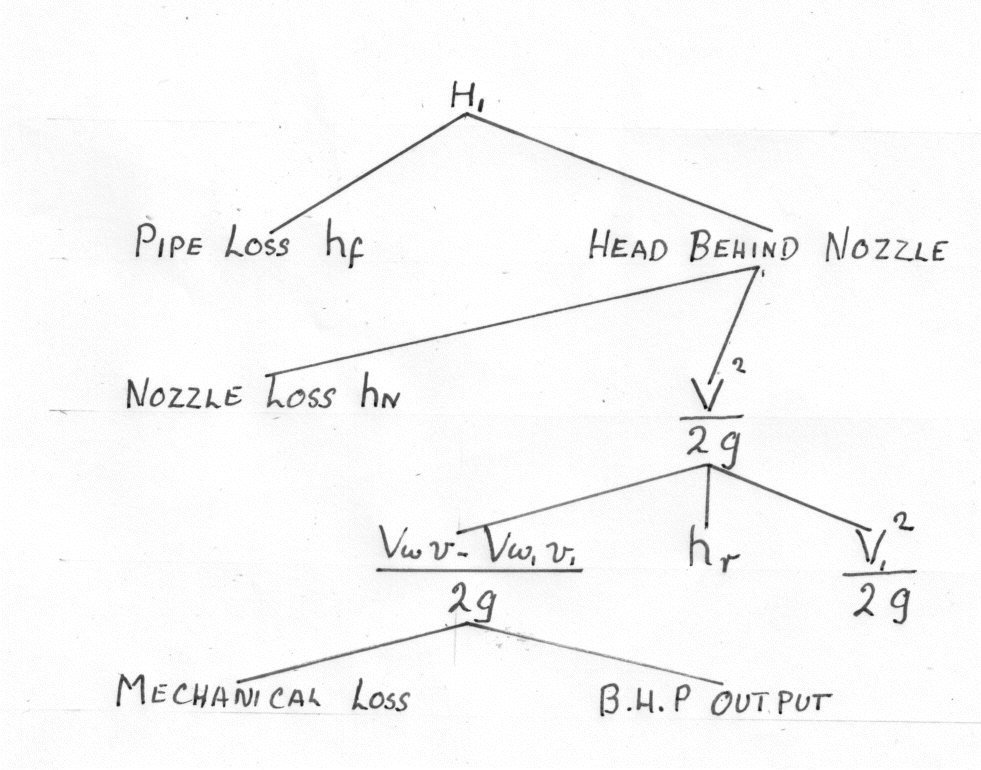 H₁
PIPE LOSS hf
HEAD BEHIND NOZZLE
NOZZLE LOSS hN
V²
2g
Vω v - Vω₁ v₁
2g
hr
V₁²
2g
MECHANICAL LOSS
B.H.P OUTPUT